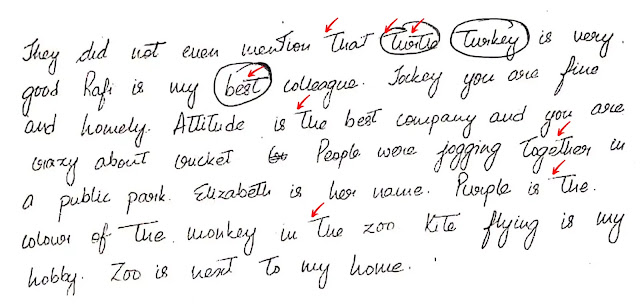 They did not even mention That Turtle Turkey is very.
good Rafi is my best colleague. Jockey you are fine
and homely. Attitude is The best company and you are
crazy about cricket People were jogging Together in
a public park. Elizabeth is her name. Purple is The.
colour of The monkey in The zoo Kite flying is my
hobby. Zoo is next To my home.